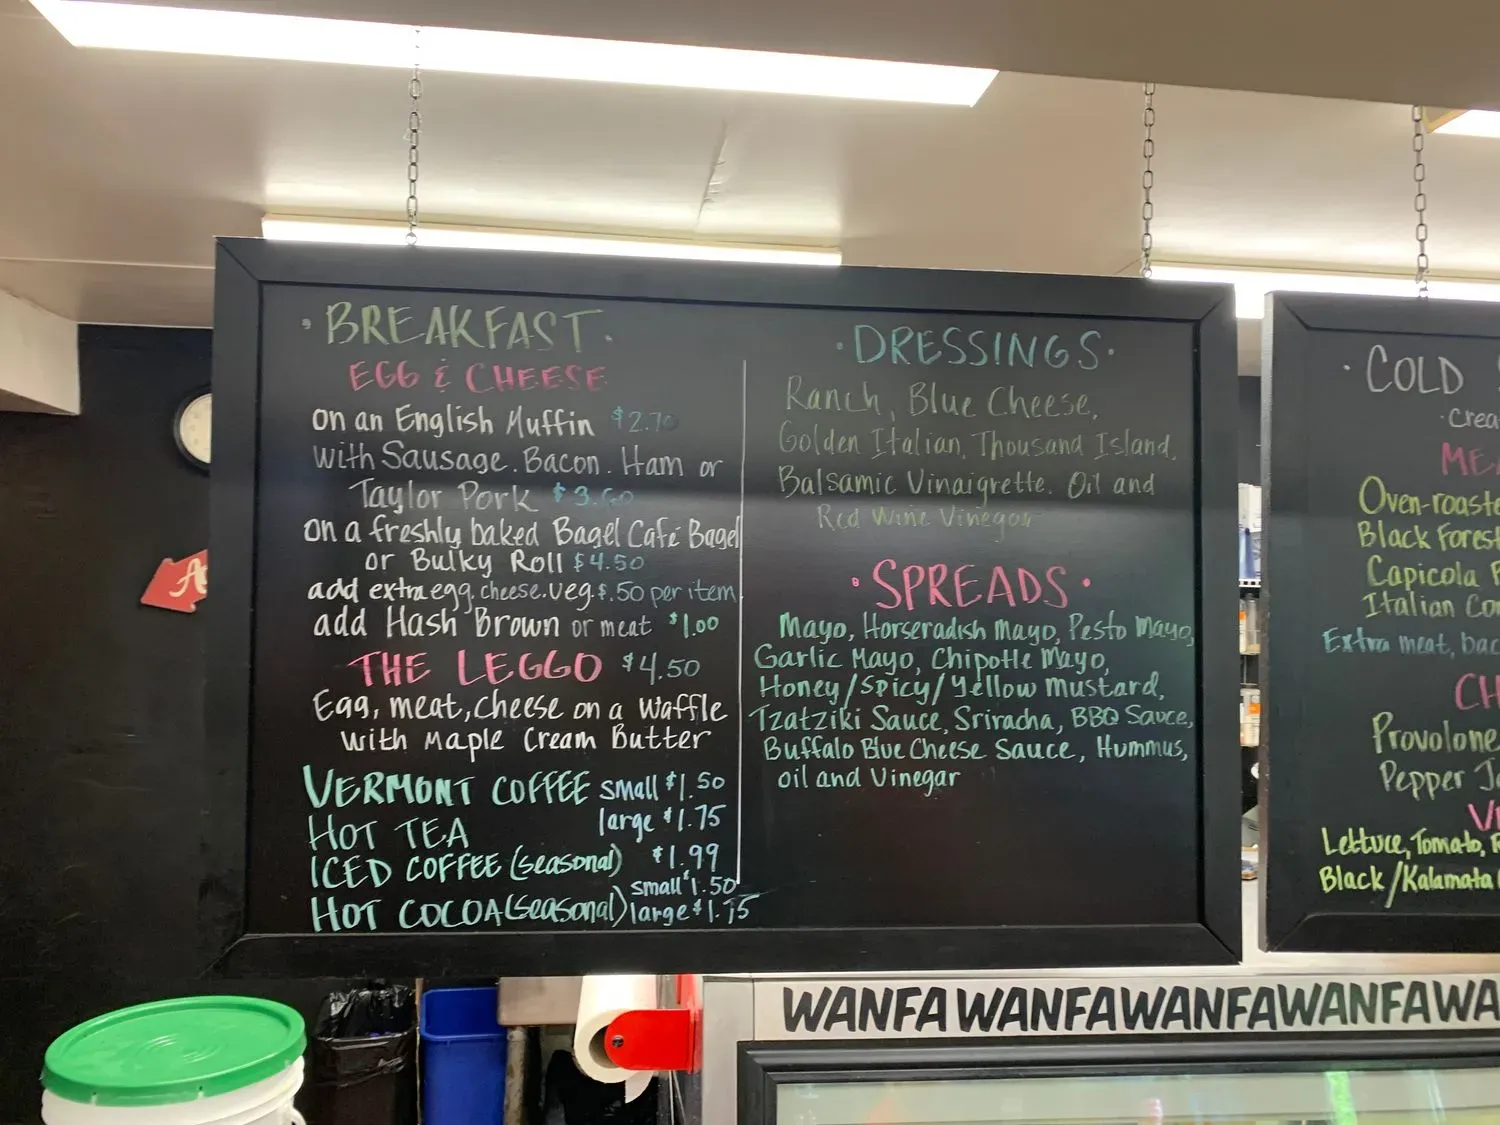 · BREAKFAST ·
EGG & CHEESE
on an English Muffin $2.70
with Sausage. Bacon. Ham or
Taylor Pork $3.60
on a freshly baked Bagel Café Bagel
or Bulky Roll $4.50
add extra egg. cheese. veg. $.50 per item
add Hash Brown or meat $1.00
THE LEGGO $4.50
Egg, meat, cheese on a Waffle
with Maple Cream Butter
VERMONT COFFEE small $1.50
HOT TEA large $1.75
ICED COFFEE (seasonal) $1.99
small $1.50
HOT COCOA (seasonal) large $1.75
· DRESSINGS ·
Ranch, Blue Cheese,
Golden Italian, Thousand Island,
Balsamic Vinaigrette. Oil and
Red Wine Vinegar
· SPREADS ·
Mayo, Horseradish Mayo, Pesto Mayo,
Garlic Mayo, Chipotle Mayo,
Honey/Spicy/Yellow Mustard,
Tzatziki Sauce, Sriracha, BBQ Sauce,
Buffalo Blue Cheese Sauce, Hummus,
oil and Vinegar
· COLD
· Crea
ME
Oven-roaste
Black Forest
Capicola
Italian Co
Extra meat, bac
CH
Provolone
Pepper J
V
Lettuce, Tomato, R
Black/Kalamata
WANFAWANFAWANFAWANFAWA